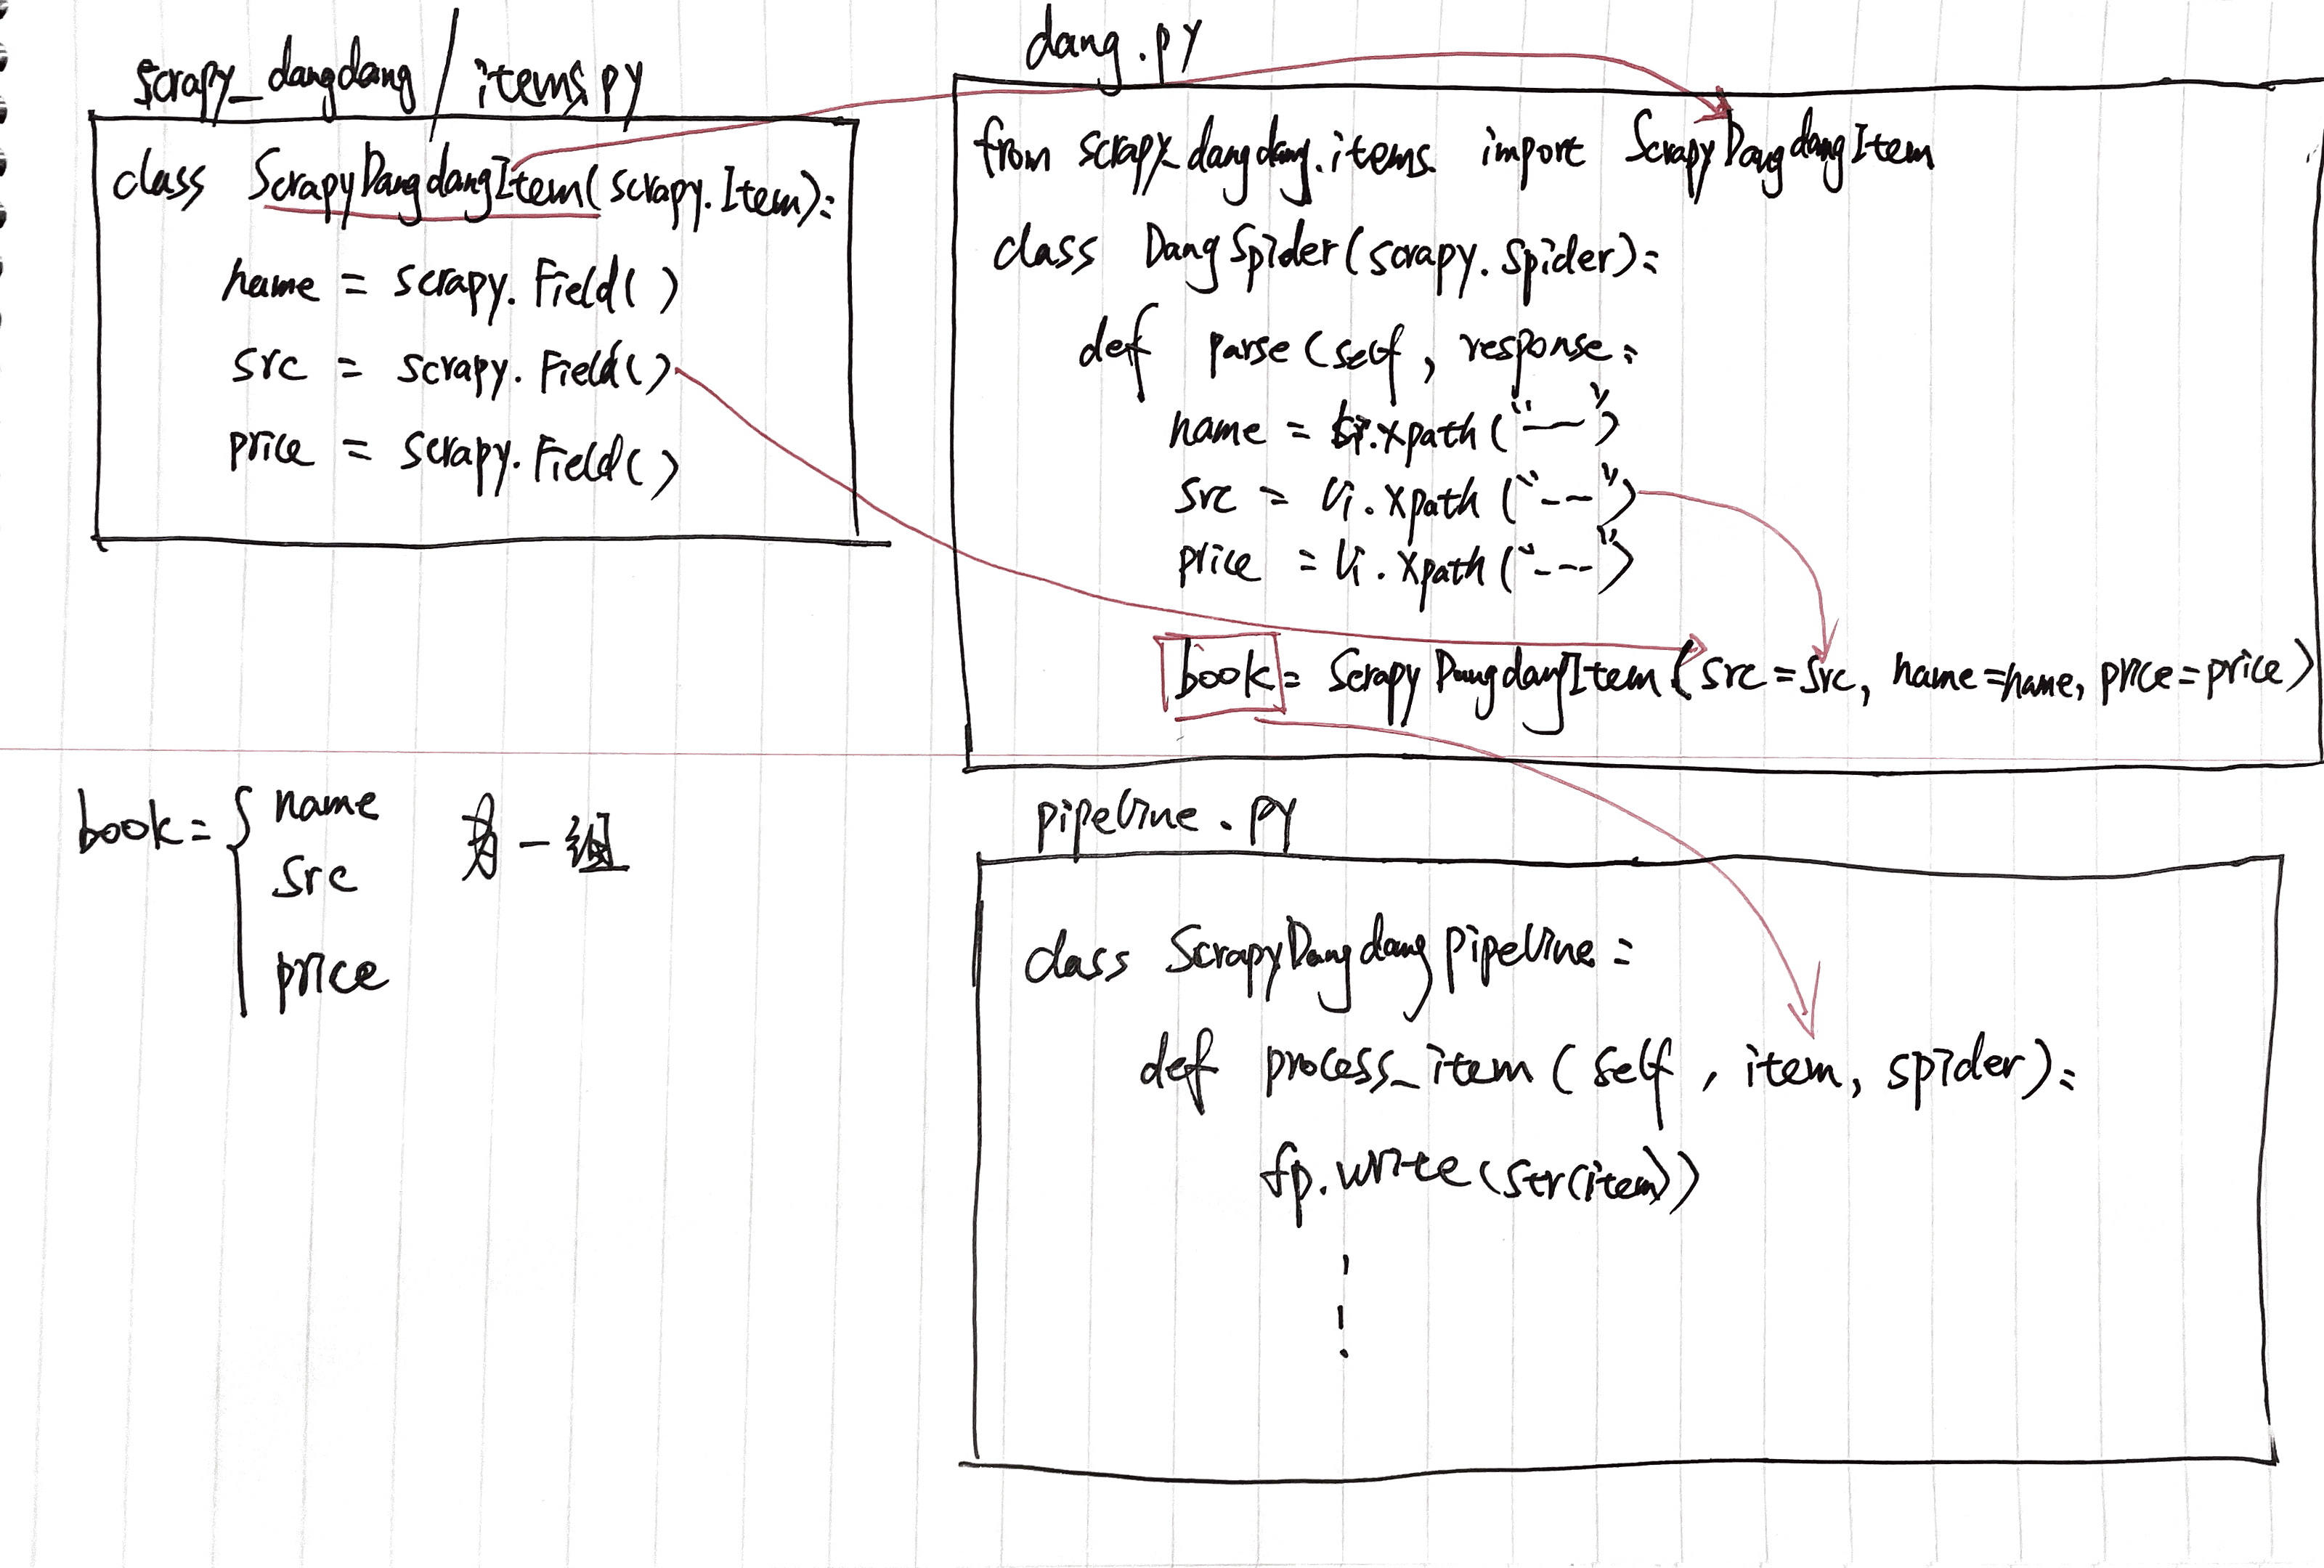 scrapy_dangdang / items.py
class ScrapyDangdangItem(scrapy.Item):
name = scrapy.Field()
src = scrapy.Field()
price = scrapy.Field()
dang.py
from scrapy_dangdang.items. import ScrapyDangdangItem
class DangSpider(scrapy.Spider):
def parse(self, response:
name = li.xpath("—")
src = li.xpath("--")
price = li.xpath("---")
book = ScrapyDangdangItem(src=src, name=name, price=price)
book = { name
src
price
为一组
pipeline.py
class ScrapyDangdangPipeline:
def process_item(self, item, spider):
fp.write(str(item))